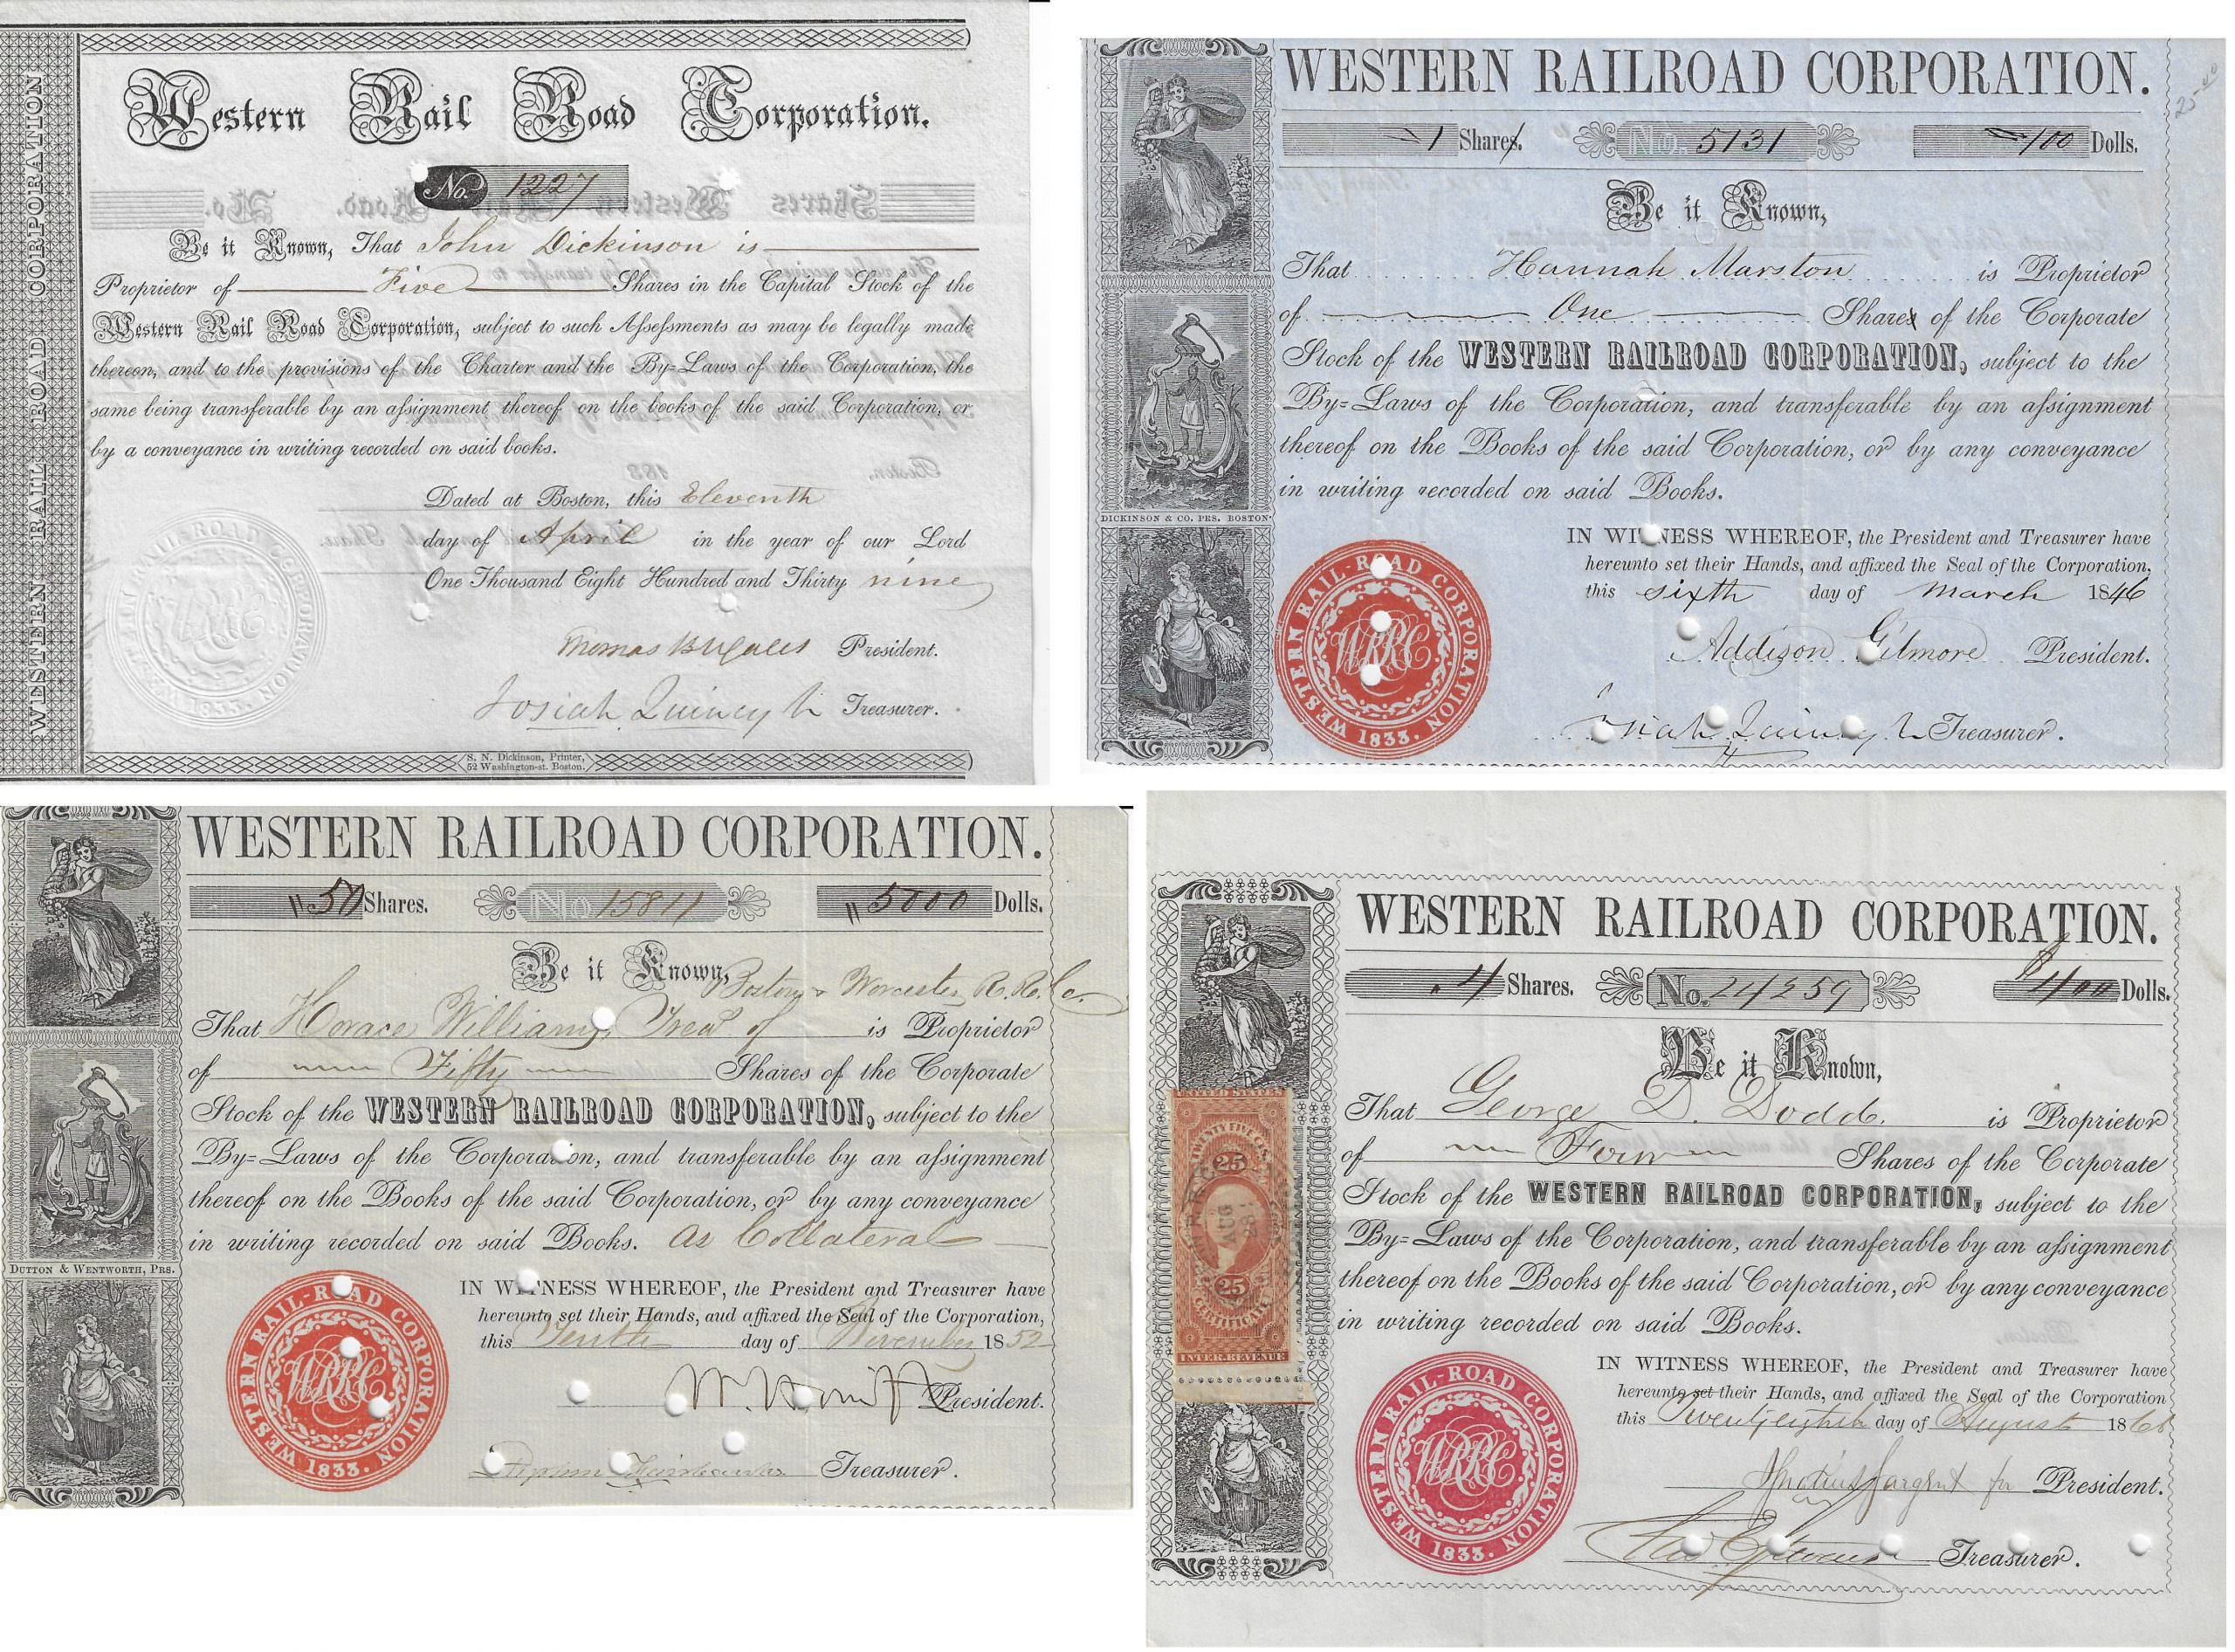 WESTERN RAIL ROAD CORPORATION
Western Rail Road Corporation.
No. 1227
Be it Known, That John Dickinson is
Proprietor of Five Shares in the Capital Stock of the
Western Rail Road Corporation, subject to such Assessments as may be legally made
thereon, and to the provisions of the Charter and the By-Laws of the Corporation, the
same being transferable by an assignment thereof on the books of the said Corporation, or
by a conveyance in writing recorded on said books.
Dated at Boston, this Eleventh
day of April in the year of our Lord
One Thousand Eight Hundred and Thirty nine
Thomas B Wales President.
Josiah Quincy Jr Treasurer.
WESTERN RAIL-ROAD CORPORATION
WRRC
1833.
S. N. Dickinson, Printer,
52 Washington-st. Boston.
WESTERN RAILROAD CORPORATION.
1 Shares. No. 5131 100 Dolls.
Be it Known,
That Hannah Marston is Proprietor
of One Shares of the Corporate
Stock of the WESTERN RAILROAD CORPORATION, subject to the
By-Laws of the Corporation, and transferable by an assignment
thereof on the Books of the said Corporation, or by any conveyance
in writing recorded on said Books.
DICKINSON & CO. PRS. BOSTON
IN WITNESS WHEREOF, the President and Treasurer have
hereunto set their Hands, and affixed the Seal of the Corporation,
this sixth day of March 1846
Addison Gilmore President.
Josiah Quincy Jr Treasurer.
WESTERN RAIL-ROAD CORPORATION
WRRC
1833.
WESTERN RAILROAD CORPORATION.
50 Shares. No 15811 5000 Dolls.
Be it Known,
Boston & Worcester R. R. Co.
That Horace Williams, Treas of is Proprietor
of Fifty Shares of the Corporate
Stock of the WESTERN RAILROAD CORPORATION, subject to the
By-Laws of the Corporation, and transferable by an assignment
thereof on the Books of the said Corporation, or by any conveyance
in writing recorded on said Books. as Collateral
DUTTON & WENTWORTH, PRS.
IN WITNESS WHEREOF, the President and Treasurer have
hereunto set their Hands, and affixed the Seal of the Corporation,
this Tenth day of November 1852
President.
Stephen Fairbanks Treasurer.
WESTERN RAIL-ROAD CORPORATION
WRRC
1833.
WESTERN RAILROAD CORPORATION.
4 Shares. No. 24259 $400 Dolls.
Be it Known,
That George D. Dodd. is Proprietor
of Four Shares of the Corporate
Stock of the WESTERN RAILROAD CORPORATION, subject to the
By-Laws of the Corporation, and transferable by an assignment
thereof on the Books of the said Corporation, or by any conveyance
in writing recorded on said Books.
UNITED STATES
TWENTY FIVE CTS.
25
AUG
28
25
CERTIFICATE
INTER. REVENUE
IN WITNESS WHEREOF, the President and Treasurer have
hereunto set their Hands, and affixed the Seal of the Corporation
this Twentyeighth day of August 186
Sargent for President.
Treasurer.
WESTERN RAIL-ROAD CORPORATION
WRRC
1833.